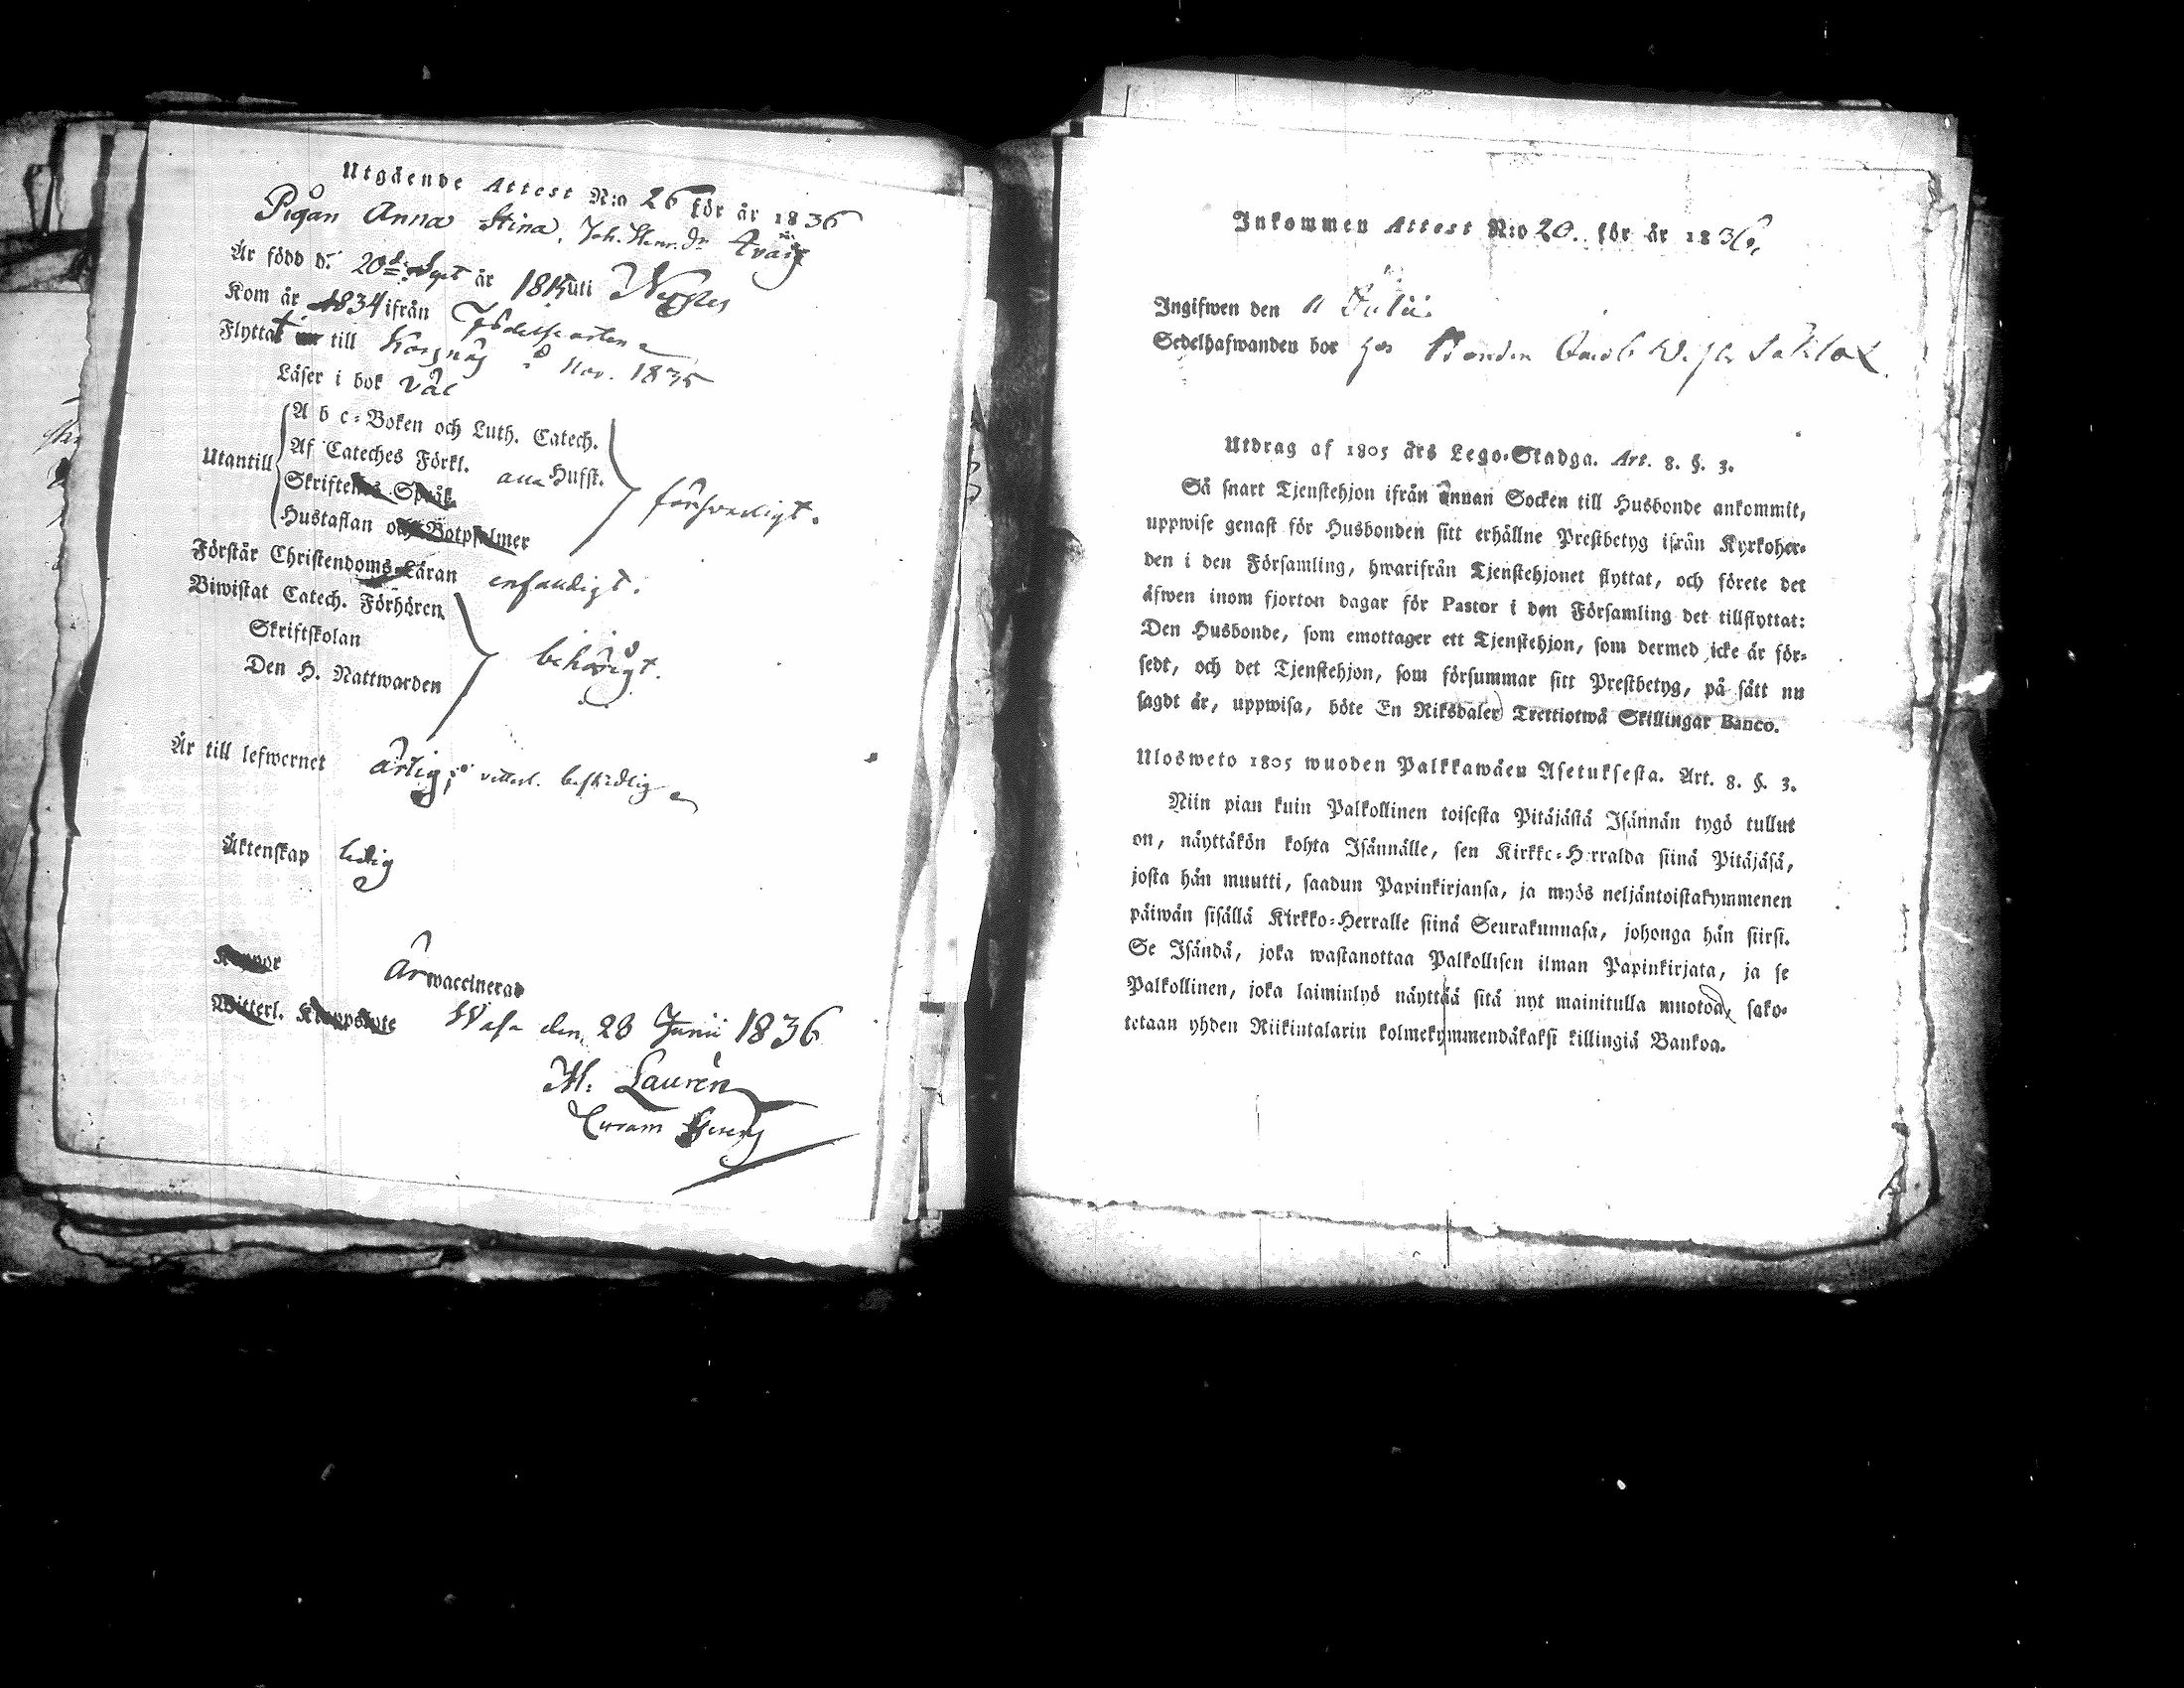 Utgående Attest N:o 26 för år 1836
Pigan Anna Stina, Joh. Henr. dr
Är född d. 20de Sept år 1815 uti
Kom år 1834 ifrån
Flyttat till Korsnäs i Nov. 1835
Läser i bok väl
Utantill
A b c-Boken och Luth. Catech.
Af Cateches Förkl. Hufst.
Skriftenes Språk.
Hustaflan och Botpsalmer
försvarligt.
Förstår Christendoms-Läran enfaldigt.
Biwistat Catech. Förhören
Skriftskolan
Den H. Nattwarden
behörigt.
Är till lefwernet ärlig; vitterl. beskedlig
Äktenskap ledig
Koppor
Är waccinerad
Witterl. Koppskyte Wasa den 28 Junii 1836
M. Laurén
Curam Gerens
Inkommen Attest N:o 20. för år 1836.
Ingifwen den 11 Julii
Sedelhafwanden bor hos Bonden Jacob
Utdrag af 1805 års Lego-Stadga. Art. 8. §. 3.
Så snart Tjenstehjon ifrån annan Socken till Husbonde ankommit,
uppwise genast för Husbonden sitt erhållne Prestbetyg ifrån Kyrkoher-
den i den Församling, hwarifrån Tjenstehjonet flyttat, och förete det
äfwen inom fjorton dagar för Pastor i den Församling det tillflyttat:
Den Husbonde, som emottager ett Tjenstehjon, som dermed icke är för-
sedt, och det Tjenstehjon, som försummar sitt Prestbetyg, på sätt nu
sagdt är, uppwisa, böte En Riksdaler Trettiotwå Skillingar Banco.
Ulosweto 1805 wuoden Palkkawäen Asetuksesta. Art. 8. §. 3.
Niin pian kuin Palkollinen toisesta Pitäjästä Isännän tygö tullut
on, näyttäkön kohta Isännälle, sen Kirkko-Herralda siinä Pitäjäsä,
josta hän muutti, saadun Papinkirjansa, ja myös neljäntoistakymmenen
päiwän sisällä Kirkko-Herralle siinä Seurakunnasa, johonga hän siirsi.
Se Isändä, joka wastanottaa Palkollisen ilman Papinkirjata, ja se
Palkollinen, joka laiminlyö näyttää sitä nyt mainitulla muotoa, sako-
tetaan yhden Riikintalarin kolmekymmendäkaksi killingiä Bankoa.